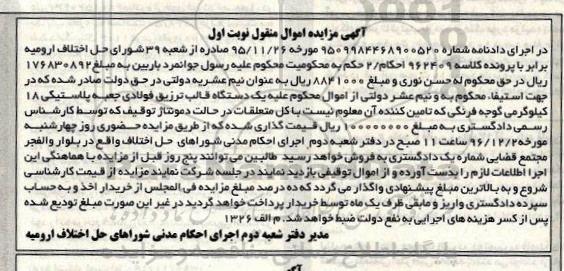 آگهی مزایده اموال منقول نوبت اول
در اجرای دادنامه شماره ۹۵۰۹۹۸۴۴۶۸۹۰۰۵۲۰ مورخه ۹۵/۱۱/۲۶ صادره از شعبه ۳۹ شورای حل اختلاف ارومیه
برابر با پرونده کلاسه ۹۶۲۴۰۹ احکام/۲ حکم به محکومیت محکوم علیه رسول جوانمرد باربین به مبلغ ۱۷۶۸۳۰۸۹۲
ریال در حق محکوم له حسن نوری و مبلغ ۸۸۴۱۰۰۰ ریال به عنوان نیم عشریه دولتی در حق دولت صادر شده که در
جهت استیفاء محکوم به و نیم عشر دولتی از اموال محکوم علیه یک دستگاه قالب تزریق فولادی جعبه پلاستیکی ۱۸
کیلوگرمی گوجه فرنگی که تامین کننده آن معلوم نیست با کل متعلقات در حالت دمونتاژ توقیف که توسط کارشناس
رسمی دادگستری به مبلغ ۱۰۰۰۰۰۰۰۰ ریال قیمت گذاری شده که از طریق مزایده حضوری روز چهارشنبه
مورخه ۹۶/۱۲/۲ ساعت ۱۱ صبح در دفتر شعبه دوم اجرای احکام مدنی شوراهای حل اختلاف واقع در بلوار والفجر
مجتمع قضایی شماره یک دادگستری به فروش خواهد رسید طالبین می توانند پنج روز قبل از مزایده با هماهنگی این
اجرا اطلاعات لازم را بدست آورده و از اموال توقیفی بازدید نمایند در جلسه شرکت نمایند مزایده از قیمت کارشناسی
شروع و به بالاترین مبلغ پیشنهادی واگذار می گردد که ده درصد مبلغ مزایده فی المجلس از خریدار اخذ و به حساب
سپرده دادگستری واریز و مابقی ظرف یک ماه توسط خریدار پرداخت خواهد گردید در غیر این صورت مبلغ تودیع شده
پس از کسر هزینه های اجرایی به نفع دولت ضبط خواهد شد. م الف ۱۳۲۶
مدیر دفتر شعبه دوم اجرای احکام مدنی شوراهای حل اختلاف ارومیه